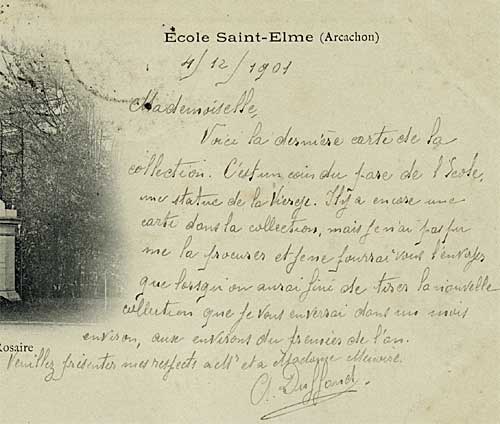 École Saint-Elme (Arcachon)
4/12/1901
Mademoiselle,
Voici la dernière carte de la
collection. C'est un coin du parc de l'École,
une statue de la Vierge. Il y a encore une
carte dans la collection, mais je n'ai pas pu
me la procurer et je ne pourrai vous l'envoyer
que lorsqu'on aura fini de tirer la nouvelle
collection que je vous enverrai dans un mois
environ, aux environs du premier de l'an.
Rosaire
Veuillez présenter mes respects à Mr et à Madame